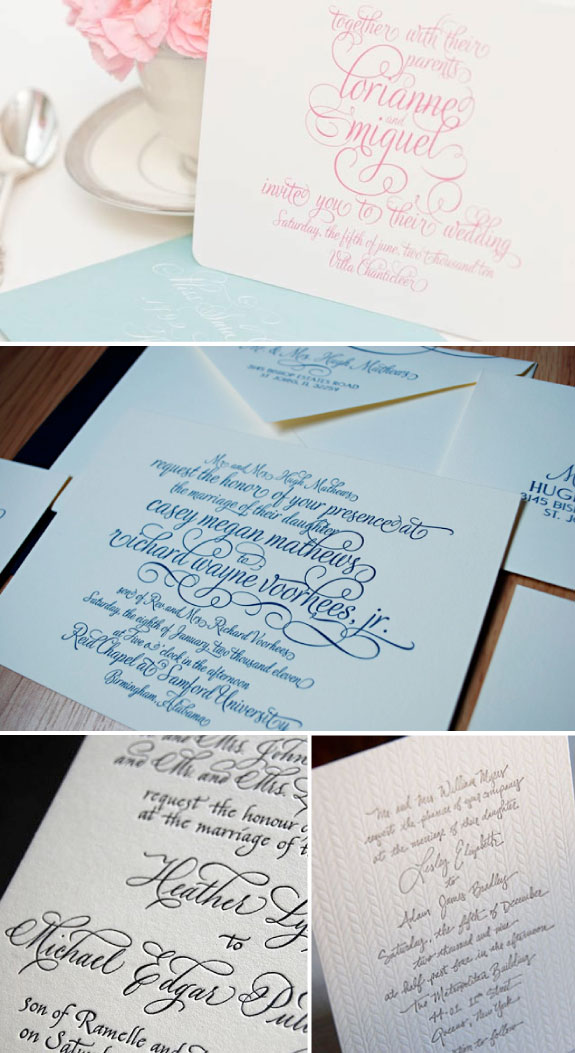 together with their
parents
lorianne
and
miguel
invite you to their wedding
Saturday, the fifth of june, two thousand ten
Villa Chanticleer
& Mrs. Hugh Mathews
3145 BISHOP ESTATES ROAD
ST. JOHNS, FL 32259
Mr. and Mrs. Hugh Mathews
request the honor of your presence at
the marriage of their daughter
casey megan mathews
to
richard wayne voorhees, jr.
son of Rev. and Mrs. Richard Voorhees
Saturday, the eighth of January, two thousand eleven
at five o'clock in the afternoon
Reid Chapel at Samford University
Birmingham, Alabama
HUGH
3145 BIS
ST. JO
and Mrs. John
and Mr. and Mrs.
request the honour
at the marriage of
Heather Ly
to
Michael Edgar Pul
son of Ramelle and
on Satu
Mr. and Mrs. William Myers
request the pleasure of your company
at the marriage of their daughter
Lesley Elizabeth
to
Adam James Bradley
Saturday, the fifth of December
two thousand and nine
at half past five in the afternoon
The Metropolitan Building
44-01 11th Street
Queens, New York
to follow